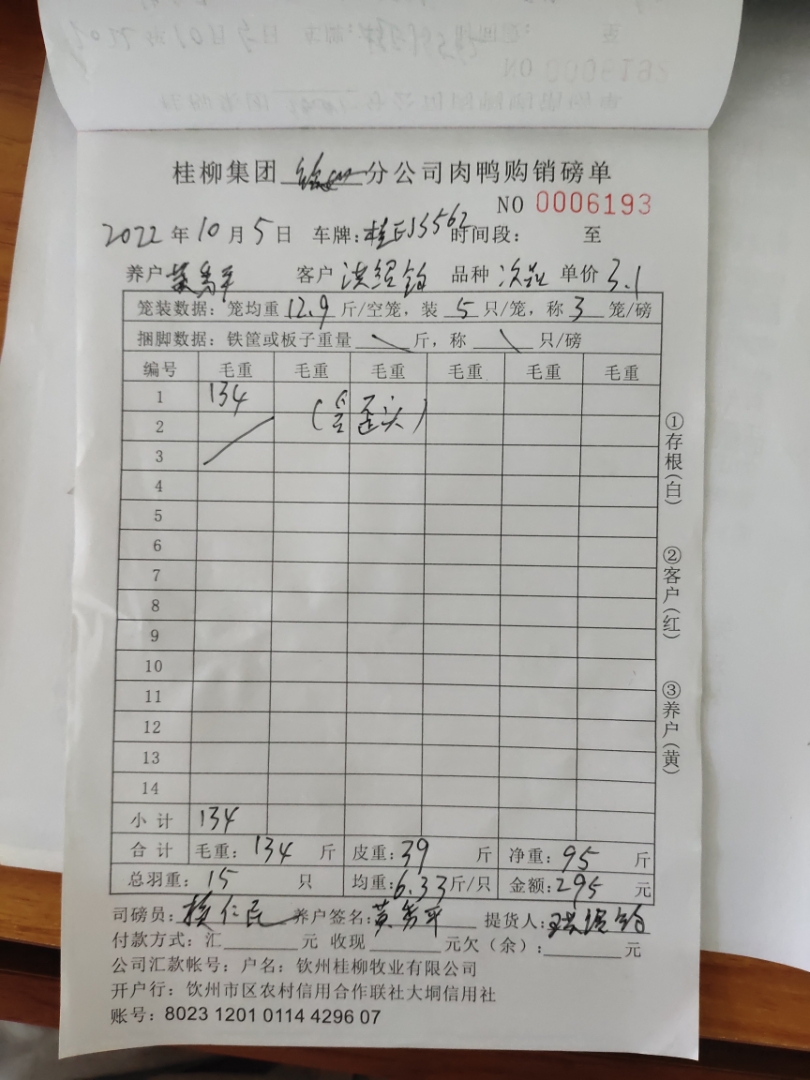 桂柳集团 钦州 分公司肉鸭购销磅单
NO 0006193
2022 年 10 月 5 日 车牌: 时间段: 至
养户 黄秀平 客户 洪绍钧 品种 次品 单价 3.1
笼装数据: 笼均重 12.9 斤/空笼, 装 5 只/笼, 称 3 笼/磅
捆脚数据: 铁筐或板子重量 斤, 称 只/磅
编号 毛重 毛重 毛重 毛重 毛重 毛重
1 134
(含歪头)
2
3
4
5
6
7
8
9
10
11
12
13
14
小计 134
合计 毛重: 134 斤 皮重: 39 斤 净重: 95 斤
总羽重: 15 只 均重: 6.33 斤/只 金额: 295 元
司磅员: 仁民 养户签名: 黄秀平 提货人:
付款方式: 汇 元 收现 元欠(余): 元
公司汇款帐号: 户名: 钦州桂柳牧业有限公司
开户行: 钦州市区农村信用合作联社大垌信用社
账号: 8023 1201 0114 4296 07
①存根(白)
②客户(红)
③养户(黄)